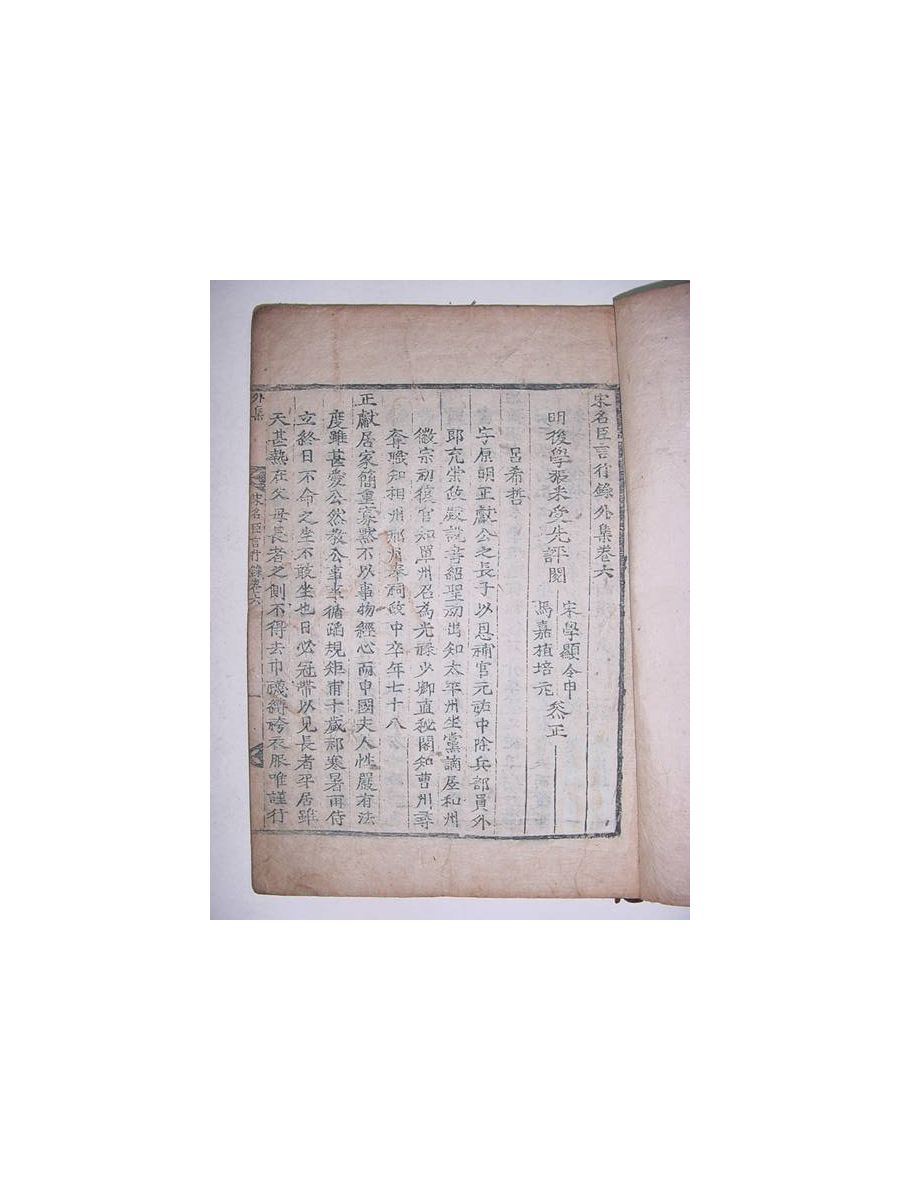 宋名臣言行錄外集卷六
明後學張采受先評閱
宋學顯令申
馬嘉植培元
叅正
呂希哲
字原明正獻公之長子以恩補官元祐中除兵部員外
郎充崇政殿說書紹聖初出知太平州坐黨謫居和州
徽宗初復官知單州召為光祿少卿直秘閣知曹州尋
奪職知相州邢州奉祠政中卒年七十八
正獻居家簡重寡黙不以事物經心而申國夫人性嚴有法
度雖甚愛公然教公事事循蹈規矩甫十歲祁寒暑雨侍
立終日不命之坐不敢坐也日必冠帶以見長者平居雖
天甚熱在父母長者之側不得去巾襪縛袴衣服唯謹行
外集
宋名臣言行錄卷六